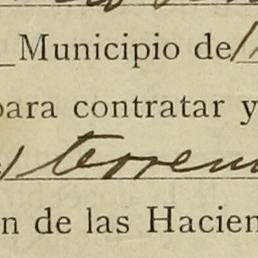 Municipio de
para contratar y
terren
n de las Hacien